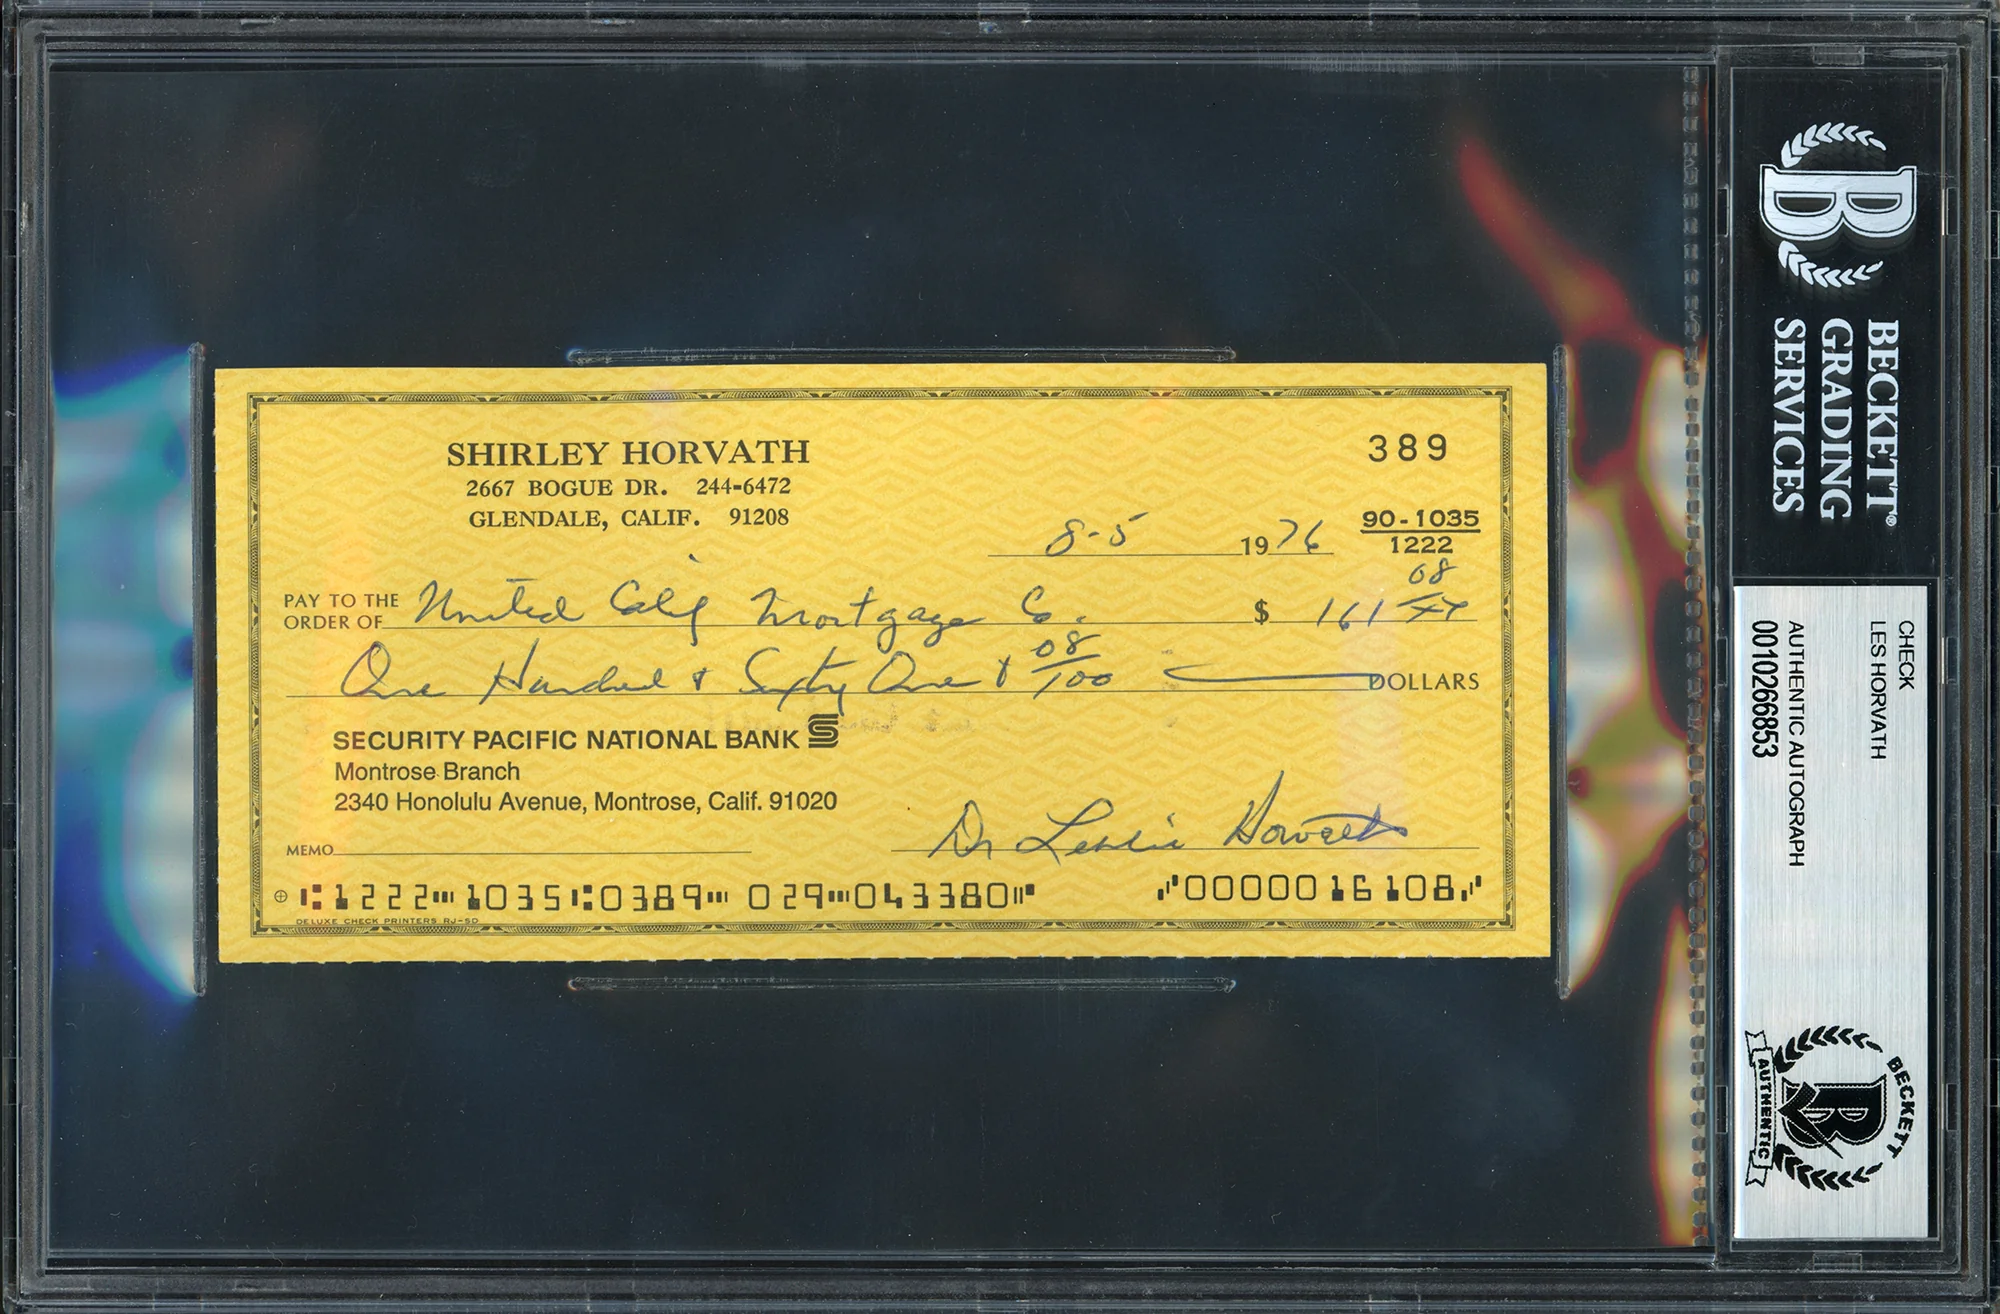 SHIRLEY HORVATH
2667 BOGUE DR. 244-6472
GLENDALE, CALIF. 91208
389
8-5 1976
90-1035
1222
PAY TO THE
ORDER OF United Calif Mortgage Co. $ 161 08/xx
One Hundred & Sixty One & 08/100 DOLLARS
SECURITY PACIFIC NATIONAL BANK
Montrose Branch
2340 Honolulu Avenue, Montrose, Calif. 91020
MEMO
Dr Leslie Horvath
⑆1222⑉1035⑆0389⑉ 029⑉043380⑈ ⑇0000016108⑇
DELUXE CHECK PRINTERS RJ-5D
BECKETT®
GRADING
SERVICES
CHECK
LES HORVATH
AUTHENTIC AUTOGRAPH
0010266853
BECKETT
AUTHENTIC